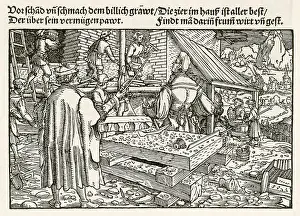 Vor schād vñ schmach dem billich grawt/ Die zier im hauß ist aller best/
Der über sein vermügen pawt. Findt mā darin frum̄ wirt vñ gest.